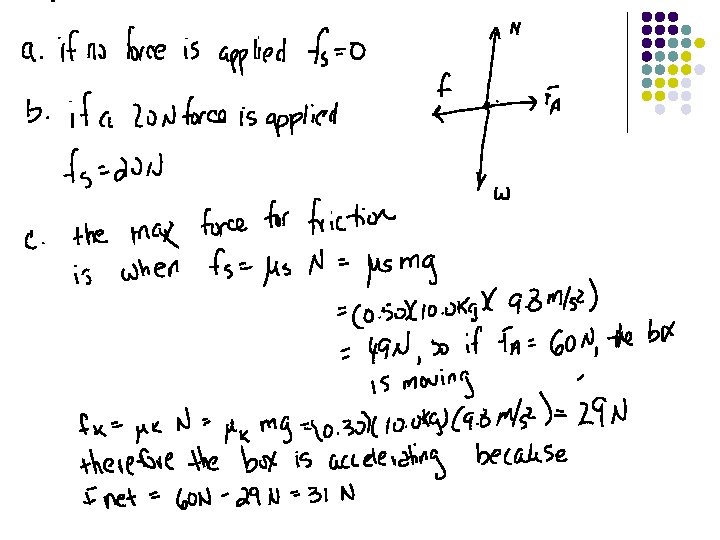 a. if no force is applied fs=0
N
f
FA
W
b. if a 20N force is applied
fs=20N
c. the max force for friction
is when fs= μs N = μs mg
=(0.50)(10.0kg)(9.8 m/s²)
= 49N, so if FA= 60N, the box
is moving
fk= μk N = μk mg =(0.30)(10.0kg)(9.8 m/s²)= 29N
therefore the box is accelerating because
Fnet = 60N - 29N = 31 N